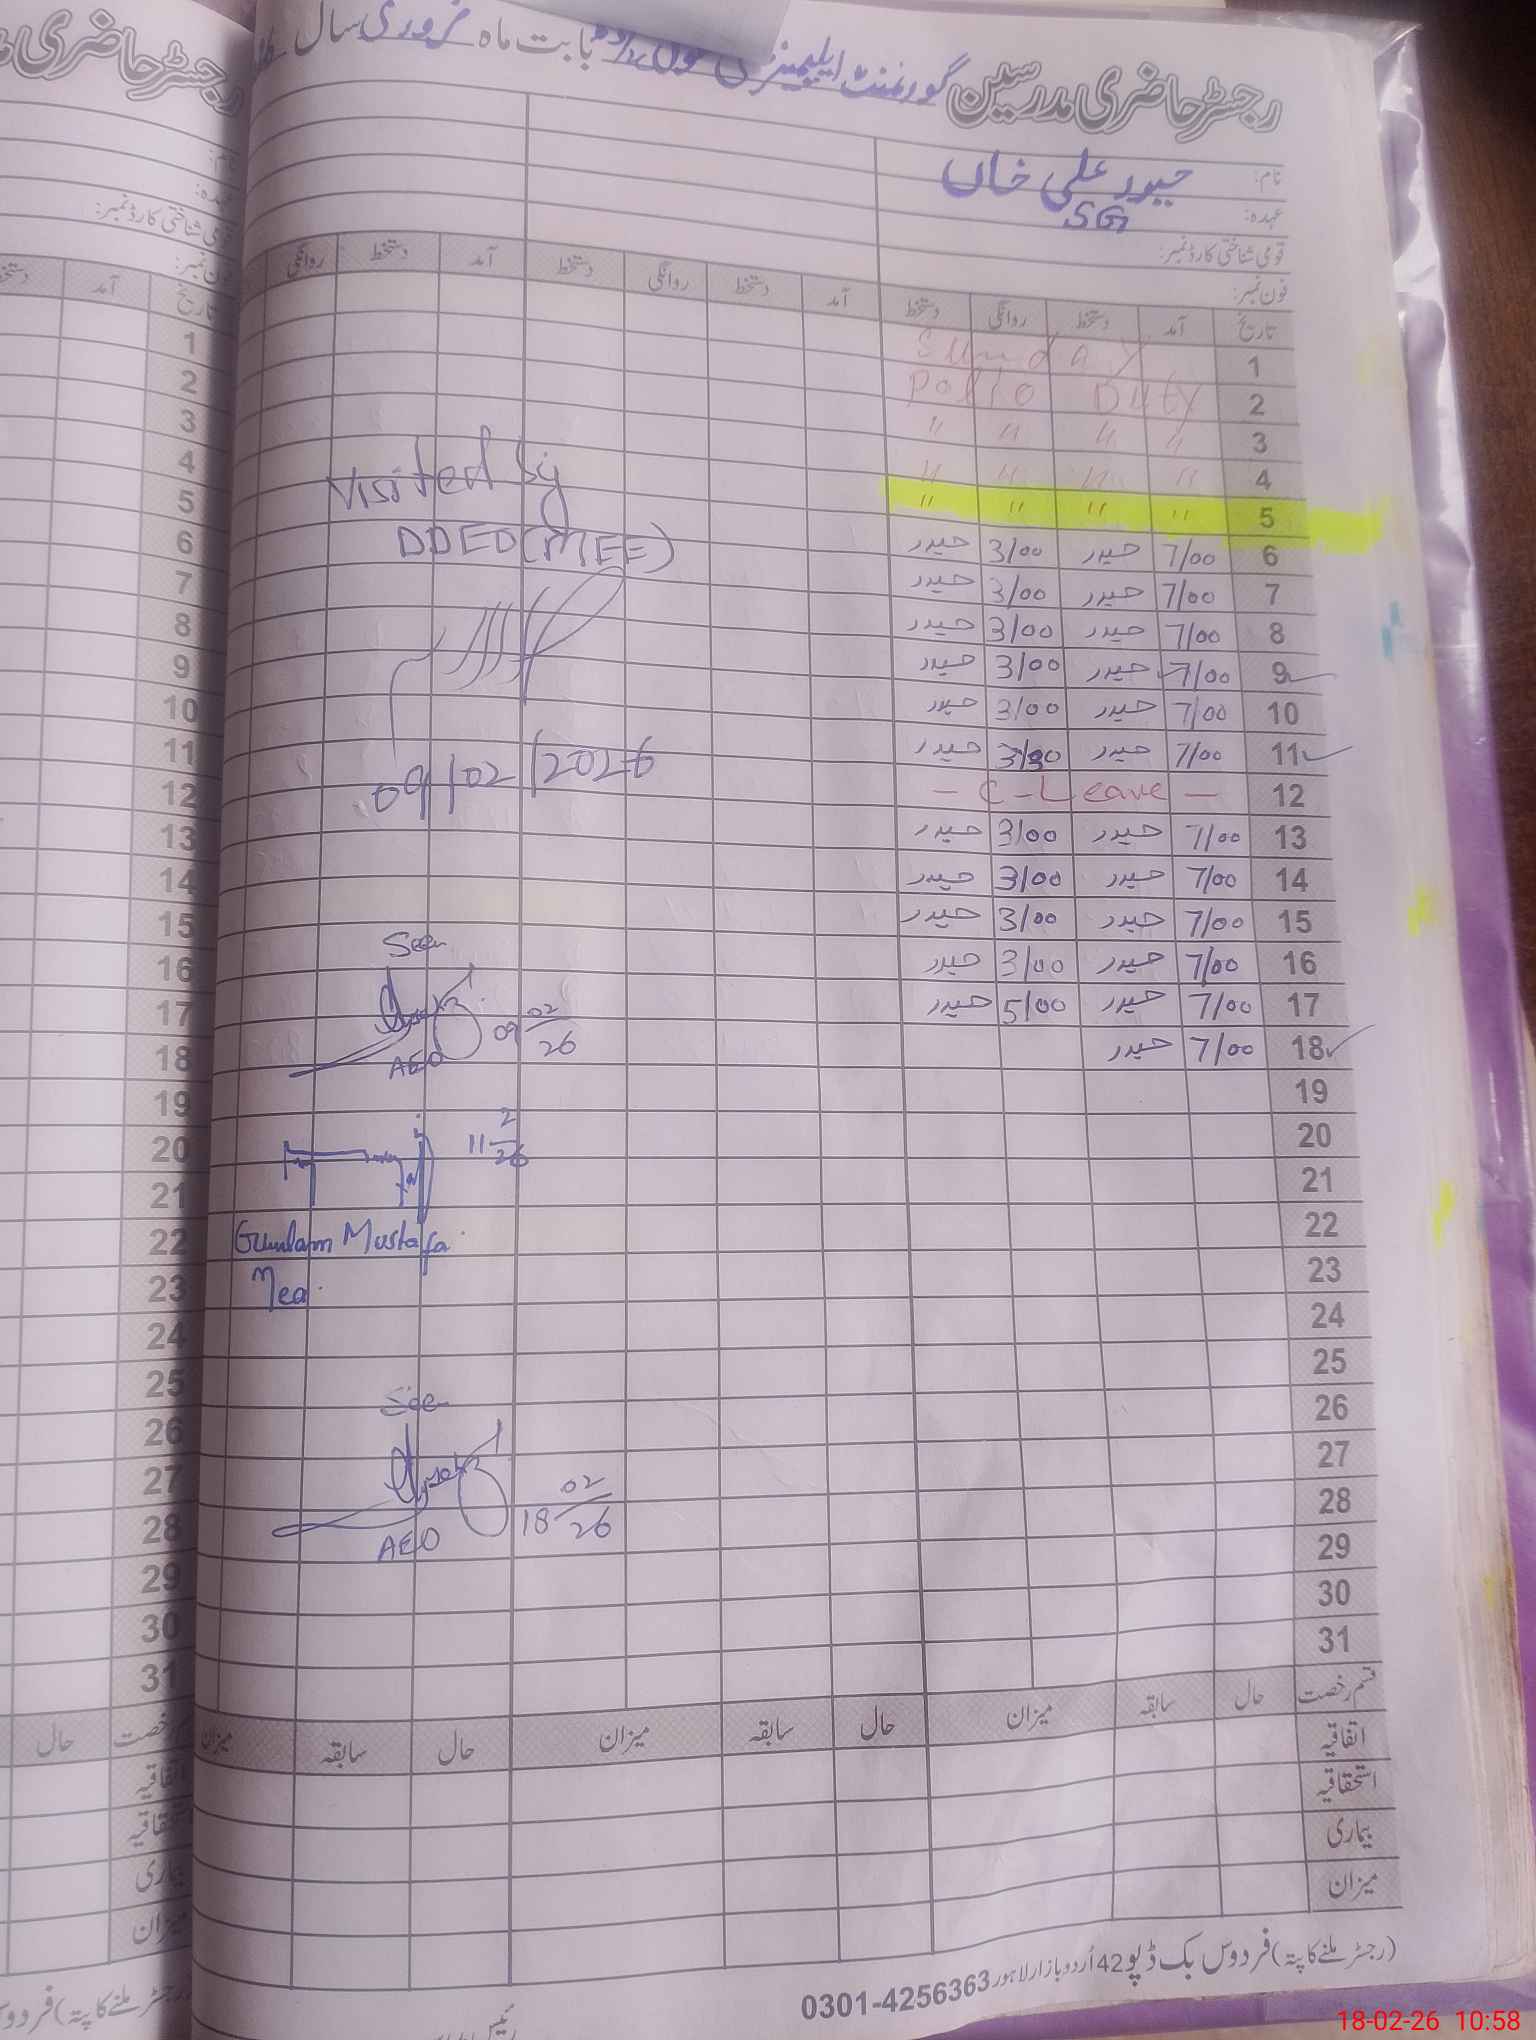 رجسٹر حاضری مدرسین گورنمنٹ ایلیمنٹری بابت ماہ فروری سال
نام: حیدر علی خاں
عہدہ: SG
قومی شناختی کارڈ نمبر:
فون نمبر:
تاریخ آمد دستخط روانگی دستخط آمد دستخط روانگی دستخط آمد دستخط روانگی
1 Sunday
2 Polio Duty
3 " " " "
4 " " " "
5 " " " "
6 7/00 حیدر 3/00 حیدر
7 7/00 حیدر 3/00 حیدر
8 7/00 حیدر 3/00 حیدر
9 7/00 حیدر 3/00 حیدر
10 7/00 حیدر 3/00 حیدر
11 7/00 حیدر حیدر
12 - C - Leave -
13 7/00 حیدر 3/00 حیدر
14 7/00 حیدر 3/00 حیدر
15 7/00 حیدر 3/00 حیدر
16 7/00 حیدر 3/00 حیدر
17 7/00 حیدر 5/00 حیدر
18 7/00 حیدر
19
20
21
22
23
24
25
26
27
28
29
30
31
Visited by
DDEO(MEE)
09/02/2026
Seen
AEO 09 02/26
11 2/26
Ghulam Mustafa
Mea.
Seen
AEO 18 02/26
قسم رخصت حال سابقہ میزان حال سابقہ میزان حال سابقہ میزان
اتفاقیہ
استحقاقیہ
بیماری
میزان
(رجسٹر ملنے کا پتہ) فردوس بک ڈپو 42 اُردو بازار لاہور 0301-4256363
رجسٹر حاضری
نام:
عہدہ:
قومی شناختی کارڈ نمبر:
فون نمبر:
تاریخ آمد
1
2
3
4
5
6
7
8
9
10
11
12
13
14
15
16
17
18
19
20
21
22
23
24
25
26
27
28
29
30
31
حال
18-02-26 10:58